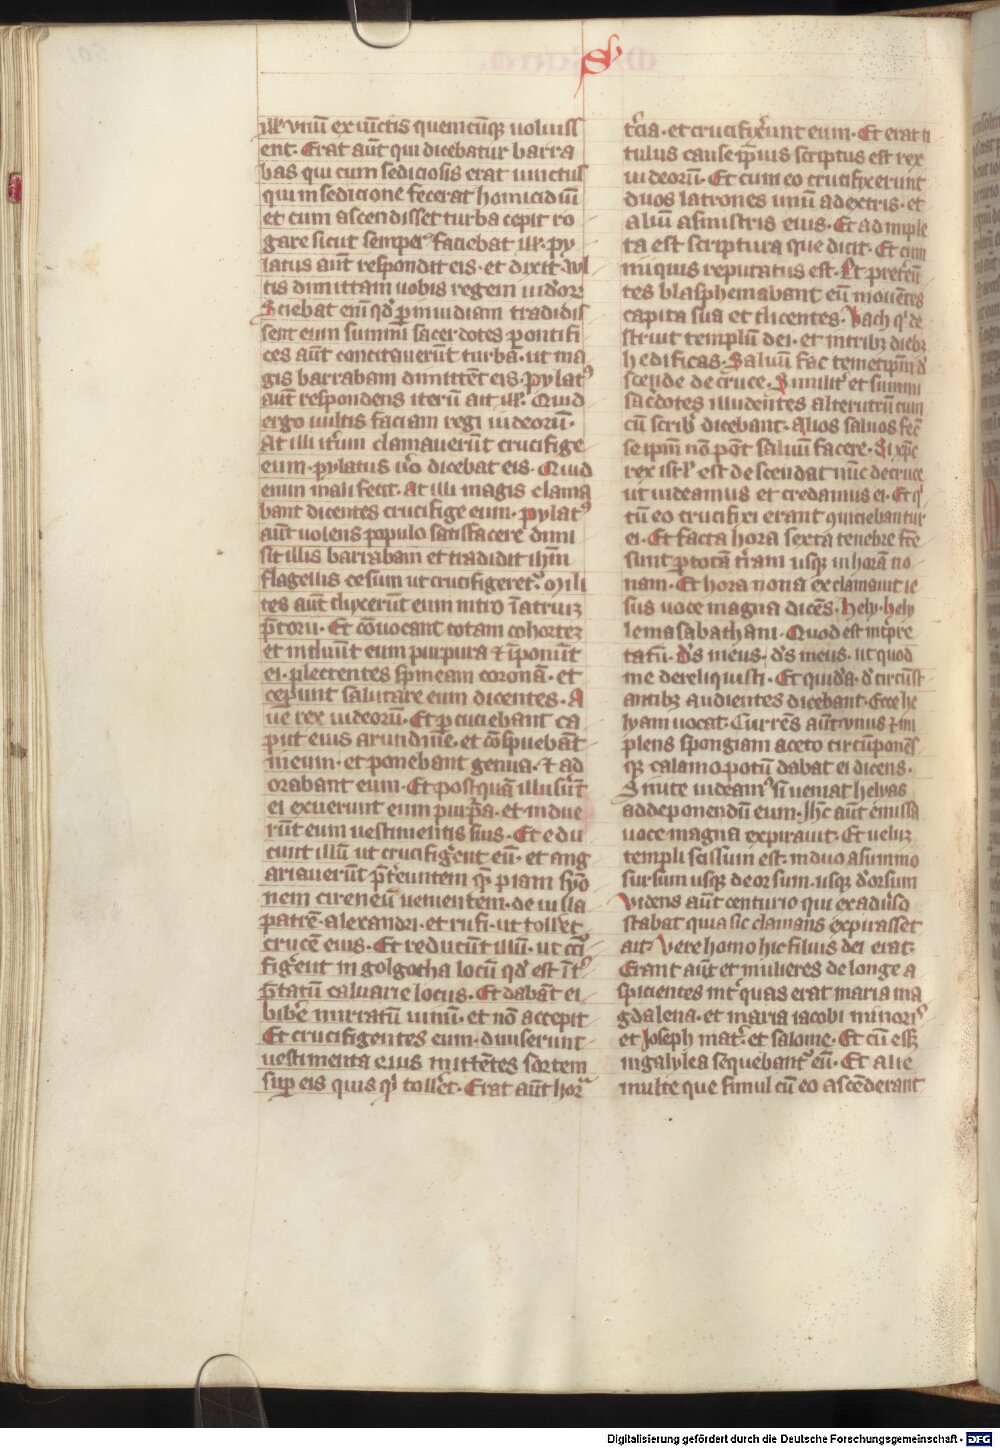 S
ill' vnū ex iūctis quemcūqȝ uoluiss
ent. Erat aūt qui dicebatur barra
bas qui cum sediciosis erat uinctus
qui in sedicione fecerat homicidiū
et cum ascendisset turba cepit ro
gare sicut semper faciebat ill'. py
latus aūt respondit eis. et dixit. wl
tis dimittam uobis regem iud'oꝝ
Sciebat eni qd' p̄ inuidiam tradidis
sent eum summi sacerdotes pontifi
ces aūt concitauerūt turbā. ut ma
gis barrabam dimittēt eis. pylat9
aūt respondens iterū ait ill'. Quid
ergo uultis faciam regi iudeorū.
At illi it'um clamauerūt crucifige
eum. pylatus u'o dicebat eis. Quid
enim mali fecit. At illi magis clama
bant dicentes crucifige eum. pylat9
aūt uolens populo satisfacere dimi
sit illis barrabam et tradidit ihm̄
flagellis cesum ut crucifigeret'. Mili
tes aūt duxerūt eum intro ī atriuȝ
p̄torii. Et cōuocant totam cohorteȝ
et induūt eum purpura ⁊ īponūt
ei. plectentes spineam coronā. et
ceperunt salutare eum dicentes. A
ue rex iudeorū. Et p̱cuciebant ca
put eius arundine. et cōspuebāt
in eum. et ponebant genua. ⁊ ad
orabant eum. Et postquā illusert̄
ei exuerunt eum purp̄a. et indue
rūt eum uestimentis suis. Et edu
cunt illū ut crucifig'ent eū. et ang
ariauerūt p̄t'euntem qp̄piam syo
nem cireneū uenientem. de uilla
patrē. alexandri. et rufi. ut toll'et
crucē eius. Et reducūt illū. ut c'ci
fig'ent in golgotha locū qd' est īt'
p̄tatū caluarie locus. Et dabāt ei
bib'e mirratū uinū. et nō accepit
Et crucifigentes eum. diuiserunt
uestimenta eius mittētes sortem
sup̱ eis quis qd' toll'et. Erat aūt hor'
t'cia. et crucifix'unt eum. Et erat ti
tulus cause ip̄ius scriptus est rex
iudeorū. Et cum eo crucifixerunt
duos latrones unū a dextris. et
aliū a sinistris eius. Et adimple
ta est scriptura que dicit. Et cum
iniquis reputatus est. Et pret'eūn
tes blasphemabant eū mouētes
capita sua et dicentes. Vach q' de
struit templū dei. et in tribȝ diebȝ
hedificas. Saluū fac temetip̄m d'
scende de cruce. Similit' et summi
sac'dotes illudentes alterutrū cum
cū scribis dicebant. Alios saluos fec̄
se ip̄m nō pōt saluū facere. Si xp̄c
rex isrl' est descendat nūc de cruce
ut uideamus et credamus ei. Et q'
cū eo crucifixi erant quiciebantur
ei. Et facta hora sexta tenebre fc̄e
sunt p̱ totā t'ram usqȝ in horā no
nam. Et hora nona exclamauit ie
sus uoce magna dicēs. Hely. hely
lema sabathani. Quod est int'pre
tatū. d's meus. d's meus. ut quod
me dereliquisti. Et quida. d' circūst
antibȝ audientes dicebant. Ecce he
lyam uocat. Currēs aūt vnus ⁊ im
plens spongiam aceto circūponēs
qȝ calamo potū dabat ei dicens.
Sinite uideam9 si ueniat helyas
ad deponendū eum. Ihc aūt emissa
uoce magna expirauit. Et uelȝ
templi scissum est. in duo a summo
sursum usqȝ deorsum. usqȝ d'orsum
Videns aūt centurio qui ex adu'so
stabat quia sic clamans expirasset
ait. Vere homo hic filius dei erat.
Erant aūt et mulieres de longe a
spicientes int' quas erat maria ma
gdalena. et maria iacobi minoris
et Ioseph mat'. et salome. Et cū eēȝ
in galylea sequebant' eū. Et alie
multe que simul cū eo ascēderant
Digitalisierung gefördert durch die Deutsche Forschungsgemeinschaft - DFG